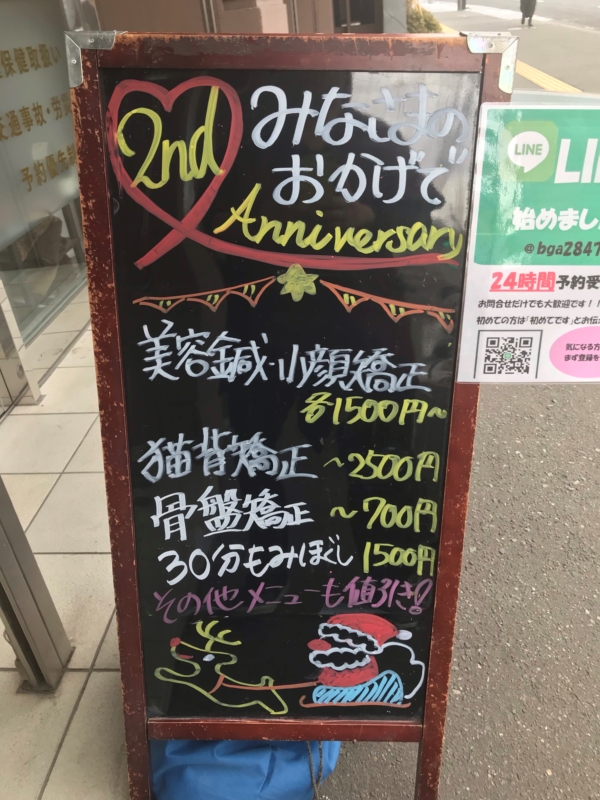 2nd
みなさまの
おかげで
Anniversary
美容鍼・小顔矯正
各1500円~
猫背矯正 ~2500円
骨盤矯正 ~700円
30分もみほぐし 1500円
その他メニューも値引き!
保健取扱い
交通事故・労災
予約優先
LINE
LI
始めまし
@bga2847
24時間予約受
お問合せだけでも大歓迎です!!
初めての方は「初めてです」とお伝
気になる方
まず登録を